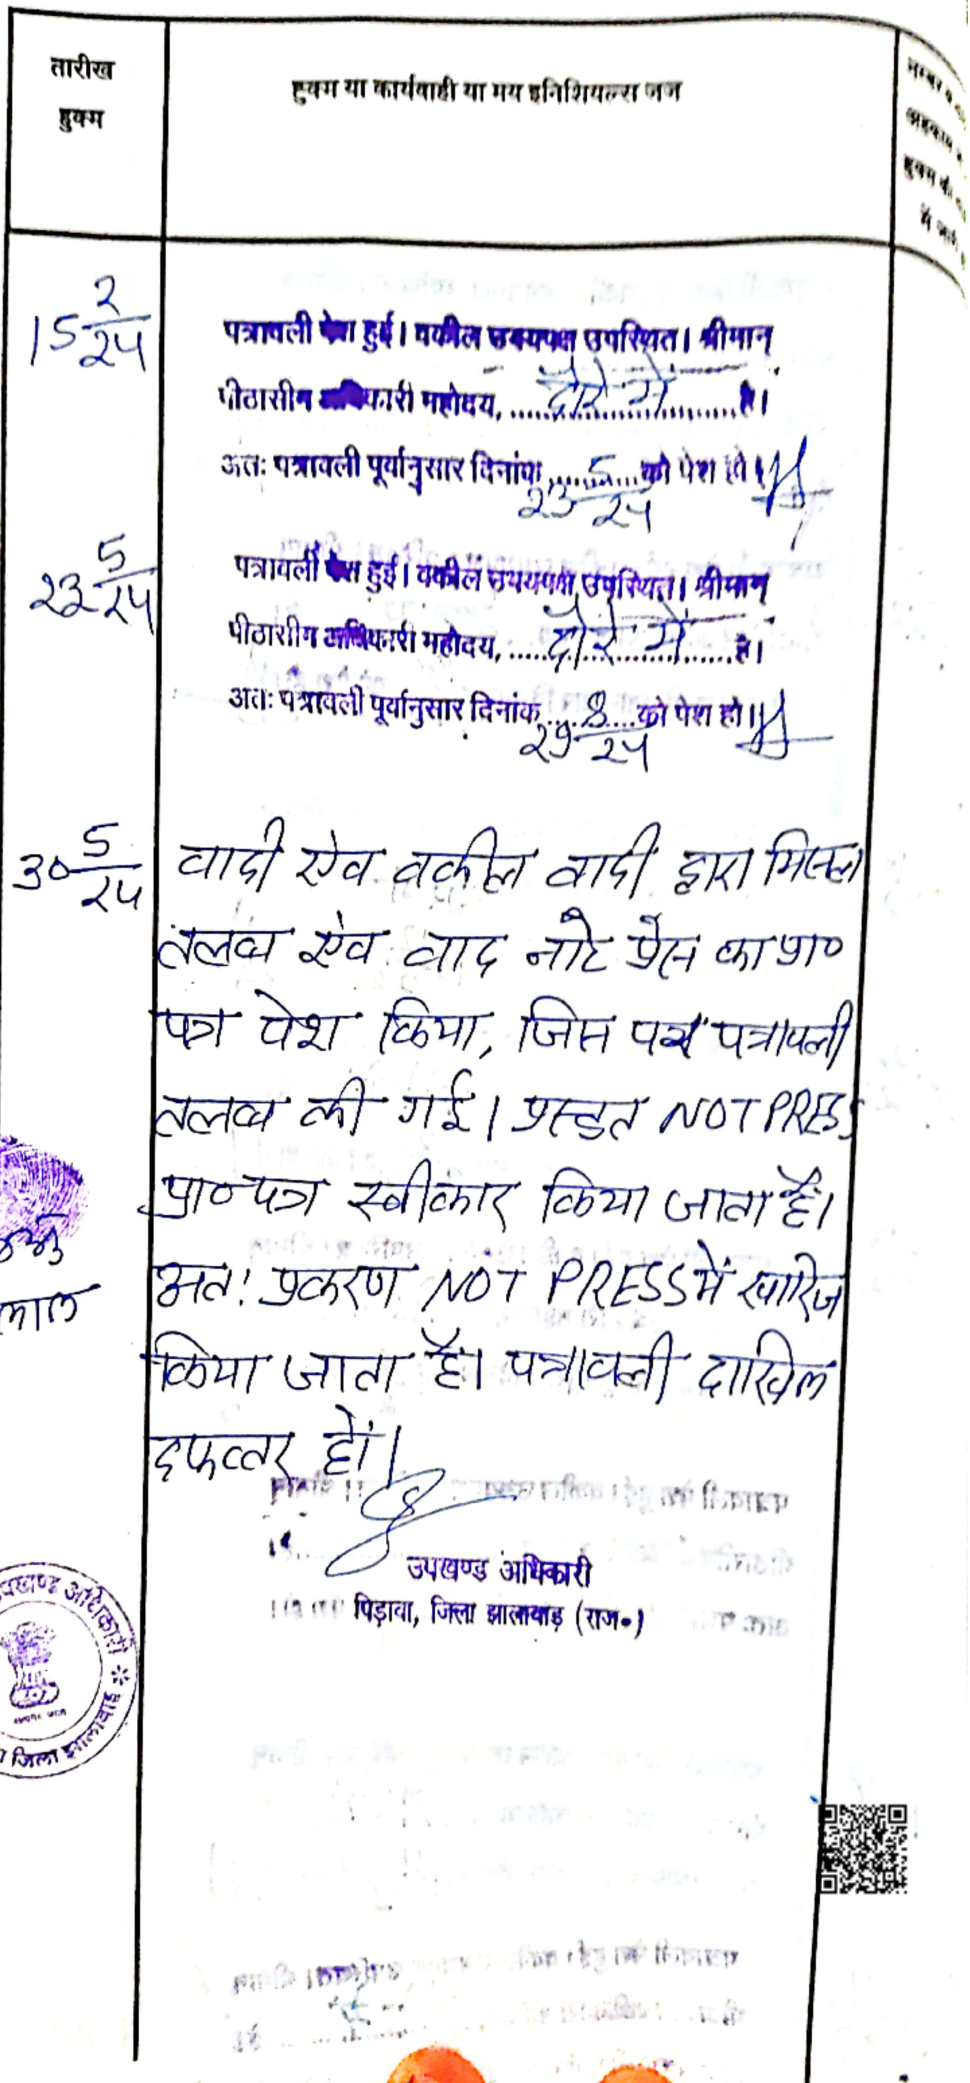 तारीख
हुक्म
हुक्म या कार्यवाही या मय इनिशियल्स जज
नम्बर व
अहकाम
हुक्म की
में जारी
15 2/24
पत्रावली पेश हुई। वकील उभयपक्ष उपस्थित। श्रीमान्
पीठासीन अधिकारी महोदय, दौरे में है।
अतः पत्रावली पूर्वानुसार दिनांक 23 5/24 को पेश हो।
23 5/24
पत्रावली पेश हुई। वकील उभयपक्ष उपस्थित। श्रीमान्
पीठासीन अधिकारी महोदय, दौरे में है।
अतः पत्रावली पूर्वानुसार दिनांक 29 8/24 को पेश हो।
30 5/24
वादी ऐव वकील वादी द्वारा मिसल
तलब ऐव वाद नोट प्रेस का प्रा०
पत्र पेश किया, जिस पर पत्रावली
तलब की गई। प्रस्तुत NOT PRESS
प्रा०पत्र स्वीकार किया जाता है।
अतः प्रकरण NOT PRESS में खारिज
किया जाता है। पत्रावली दाखिल
दफ्तर हों।
लाल
उपखण्ड अधिकारी
पिड़ावा, जिला झालावाड़ (राज०)
उपखण्ड अधिकारी
जिला झालावाड़